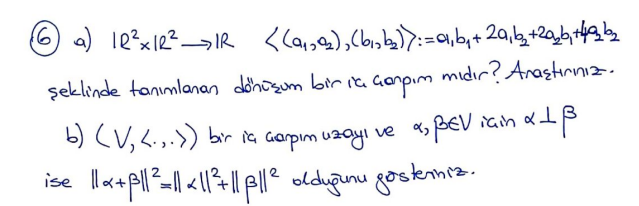 ⑥ a) IR²xIR²→IR <(a₁,a₂),(b₁,b₂)>:=a₁b₁+2a₁b₂+2a₂b₁+4a₂b₂
şeklinde tanımlanan dönüşüm bir iç çarpım mıdır? Araştırınız.
b) (V,<.,.>) bir iç çarpım uzayı ve α,β∈V için α⊥β
ise ||α+β||²=||α||²+||β||² olduğunu gösteriniz.